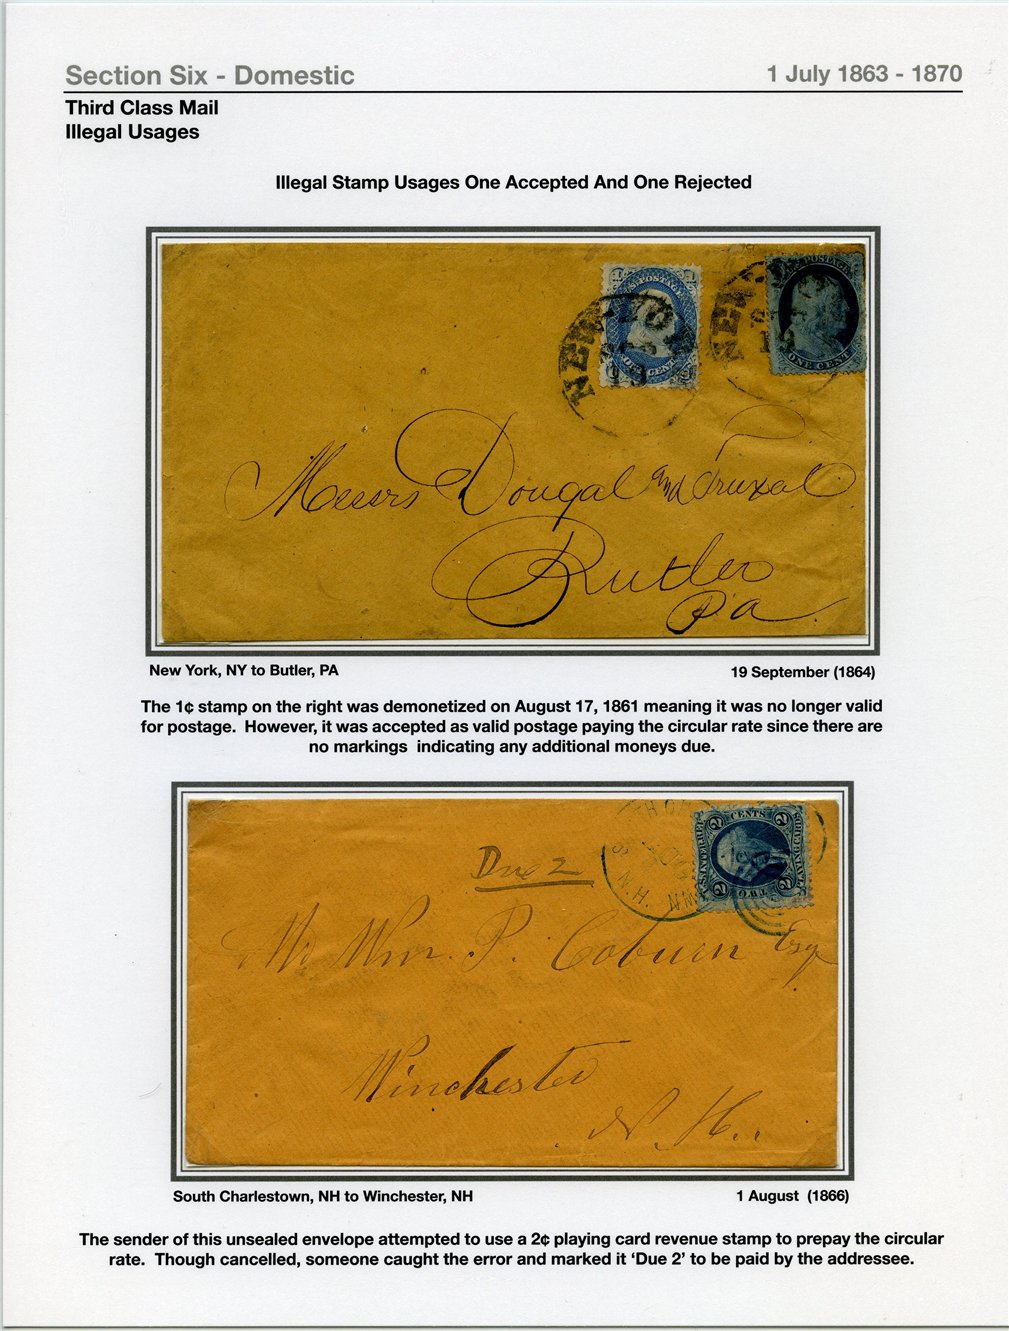 Section Six - Domestic
1 July 1863 - 1870
Third Class Mail
Illegal Usages
Illegal Stamp Usages One Accepted And One Rejected
U.S. POSTAGE
ONE CENT
NEW-YO
19
NEW
U.S. POSTAGE
ONE CENT
Messrs Dougal and Truxal
Butler
Pa
New York, NY to Butler, PA
19 September (1864)
The 1¢ stamp on the right was demonetized on August 17, 1861 meaning it was no longer valid
for postage. However, it was accepted as valid postage paying the circular rate since there are
no markings indicating any additional moneys due.
Due 2
N.H.
2 CENTS 2
U.S. INTER. REV.
PLAYING CARDS
2 TWO 2
Mr Wm. P. Coburn Esq
Winchester
N. H.
South Charlestown, NH to Winchester, NH
1 August (1866)
The sender of this unsealed envelope attempted to use a 2¢ playing card revenue stamp to prepay the circular
rate. Though cancelled, someone caught the error and marked it ‘Due 2’ to be paid by the addressee.